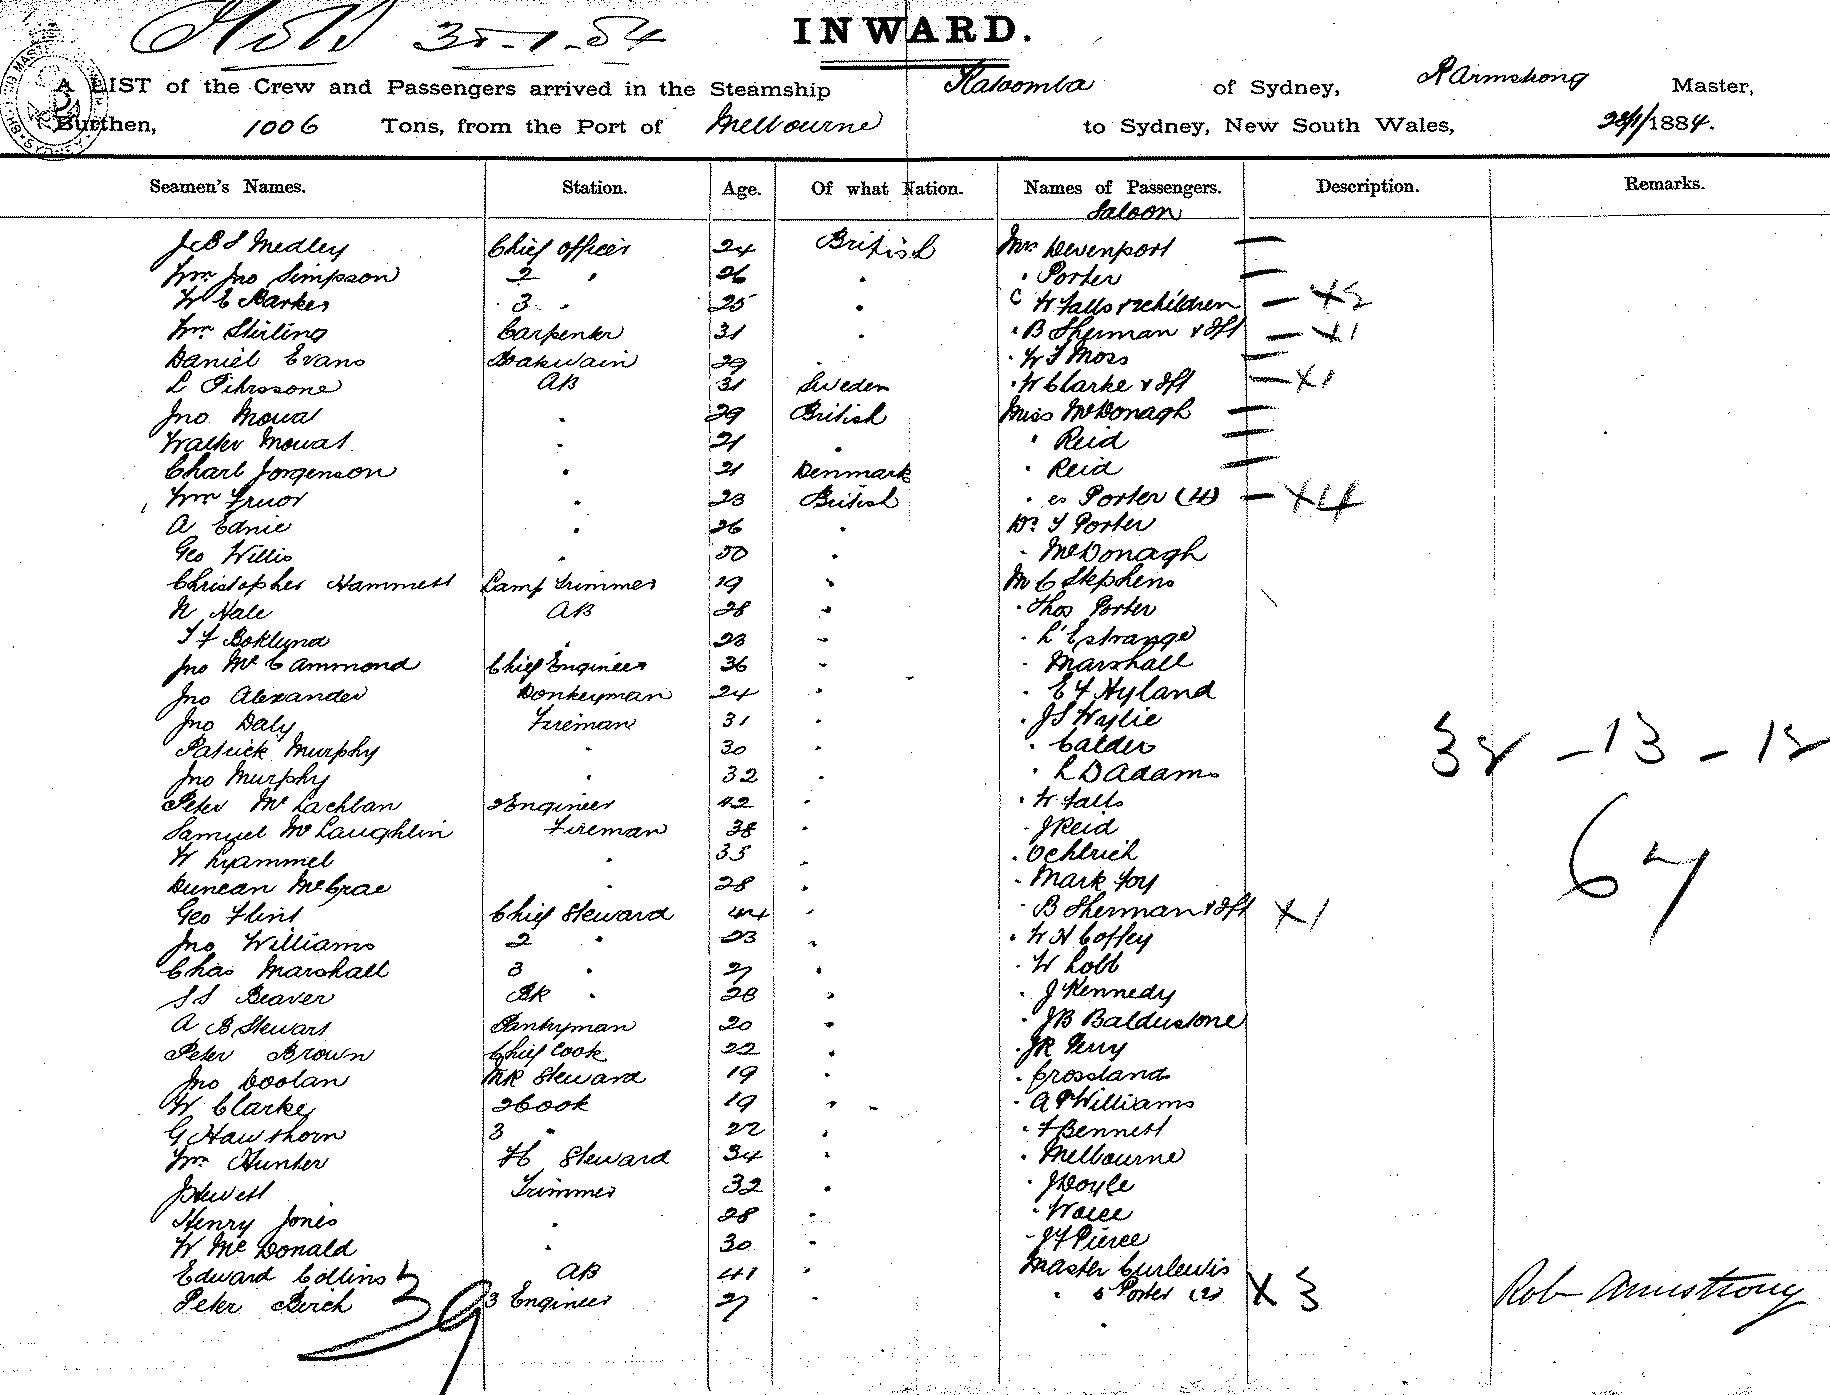 INWARD.
A LIST of the Crew and Passengers arrived in the Steamship Katoomba of Sydney, R Armstrong Master,
Burthen, 1006 Tons, from the Port of Melbourne to Sydney, New South Wales, 28/1/1884.
Seamen's Names. Station. Age. Of what Nation. Names of Passengers. Description. Remarks.
Saloon
Medley Chief officer 24 British Mrs Devenport
Wm Jno Simpson 2 " 26 " " Porter
W E Parkes 3 " 25 " W Falls & 2 children — X2
Wm Stirling Carpenter 31 " " B Sherman & Inft — X1
Daniel Evans Boatswain 29 " " W F Moss
L Pihrssone AB 31 Sweden " W Clarke & Inft — X1
Jno Mowa " 29 British Miss McDonagh
Walter Mowat " 21 " " Reid
Charl Jorgenson " 21 Denmark " Reid
Wm " 23 British " es Porter (4) — X4
A Ednie " 26 " Dr F Porter
Geo Willis " 50 " " McDonagh
Christopher Hammett Lamp Trimmer 19 " Mr C Stephens
N Hale AB 28 " " Thos Porter
T F Boklund " 23 " " L'Estrange
Jno McCammond Chief Engineer 36 " " Marshall
Jno Alexander Donkeyman 24 " " E F Hyland
Jno Daly Fireman 31 " " J S Wylie
Patrick Murphy " 30 " " Calder
Jno Murphy " 32 " " L D Adams
Peter McLachlan 2 Engineer 42 " " W Falls
Samuel McLaughlin Fireman 38 " " J Reid
W " 35 " " Oehlrich
Duncan McCrae " 28 " " Mark Foy
Geo Flint Chief Steward 44 " " B Sherman & Inft X1
Jno Williams 2 " 23 " " W H Coffey
Chas Marshall 3 " 27 " " W Lobb
S S Beaver BK " 28 " " J Kennedy
A B Stewart Pantryman 20 " " J B Balderstone
Peter Brown Chief Cook 22 " " J R Perry
Jno Doolan Steward 19 " " Crossland
W Clarke 2 Cook 19 " " A P Williams
G Hawthorn 3 " 22 " " F Bennett
Wm Hunter FC Steward 34 " " Melbourne
J Hewett Trimmer 32 " " J Doyle
Henry Jones " 28 "
W McDonald " 30 " " J F Pierce
Edward Collins AB 41 " Master Curlewis
Peter Birch 3 Engineer 27 " " s Porter (2) X 3
39
38 - 13 - 18
67
Rob Armstrong